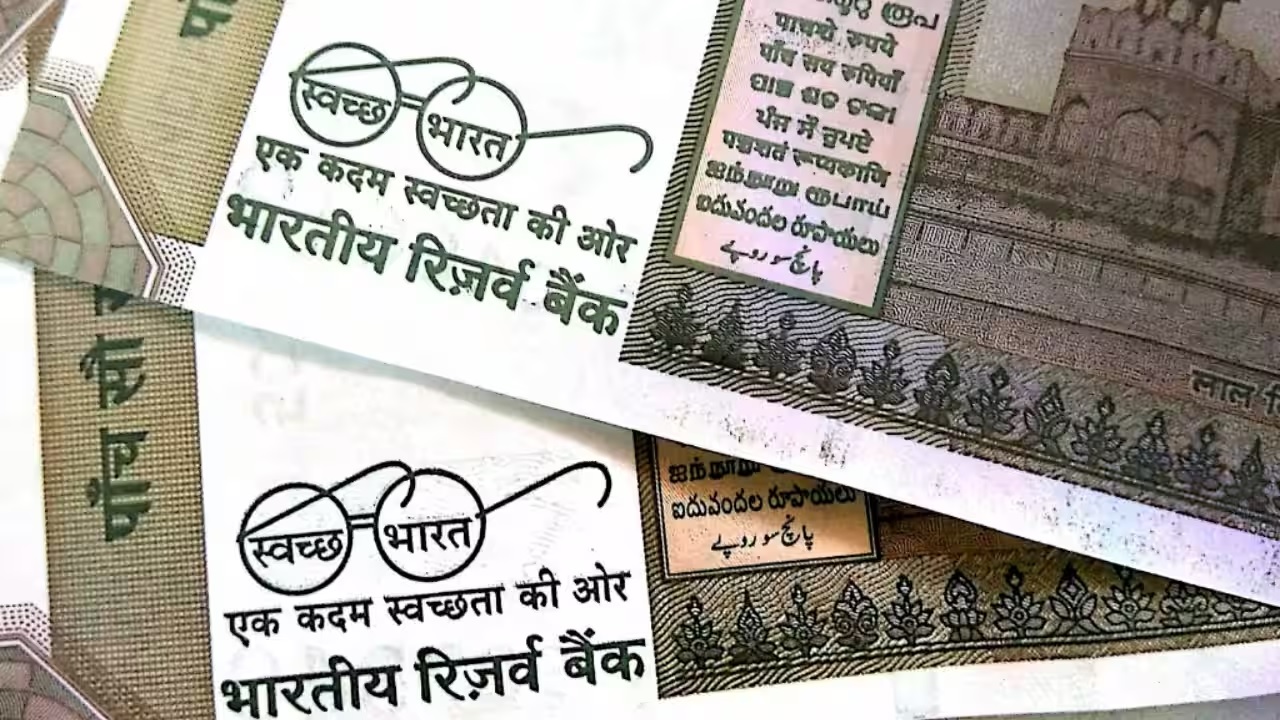 स्वच्छ भारत
एक कदम स्वच्छता की ओर
भारतीय रिज़र्व बैंक
पाचशें रुपये
पाँच सय रुपियाँ
ପାଞ୍ଚ ଶତ ଟଙ୍କା
ਪੰਜ ਸੌ ਰੁਪਏ
पञ्चशतं रूप्यकाणि
ஐந்நூறு ரூபாய்
ఐదువందల రూపాయలు
پانچ سو روپے
लाल
पांच सौ
स्वच्छ भारत
एक कदम स्वच्छता की ओर
भारतीय रिज़र्व बैंक
ஐந்நூறு
ఐదువందల రూపాయలు
پانچ سو روپے